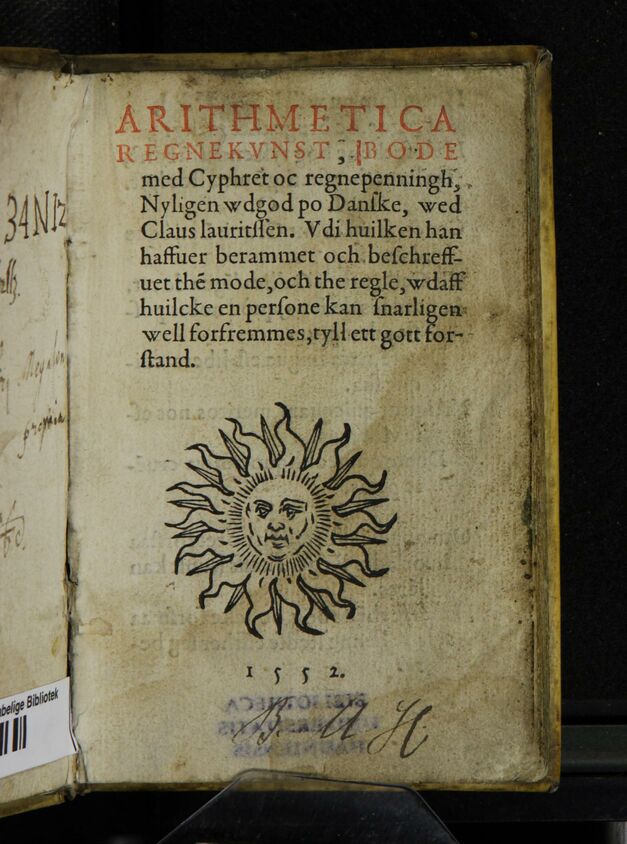 34NIZ
propria
belige Bibliotek
ARITHMETICA
REGNEKVNST, BODE
med Cyphret oc regnepenningh,
Nyligen wdgod po Danſke, wed
Claus lauritſſen. Vdi huilken han
haffuer berammet och beſchreff-
uet thē mode, och the regle, wdaff
huilcke en perſone kan ſnarligen
well forfremmes, tyll ett gott for-
ſtand.
1552.
BIBLIOTHECA
HAUNIENSIS